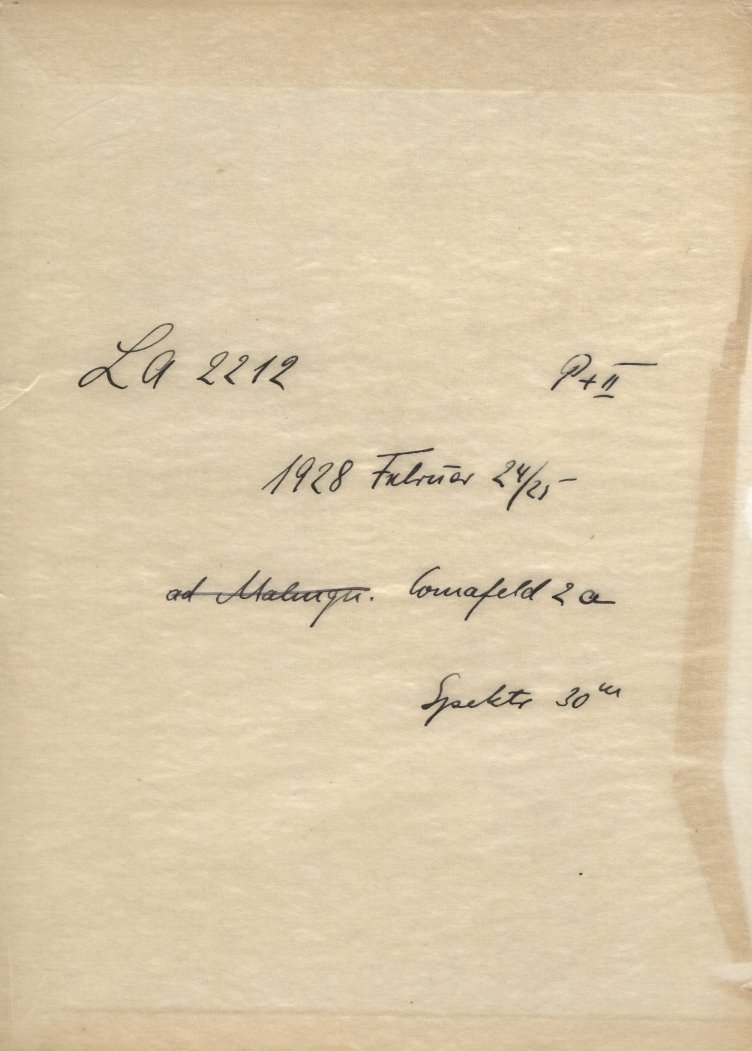 LA 2212 P+II
1928 Februar 24/25
ad Malmqu. Comafeld 2a
Spektr 30m